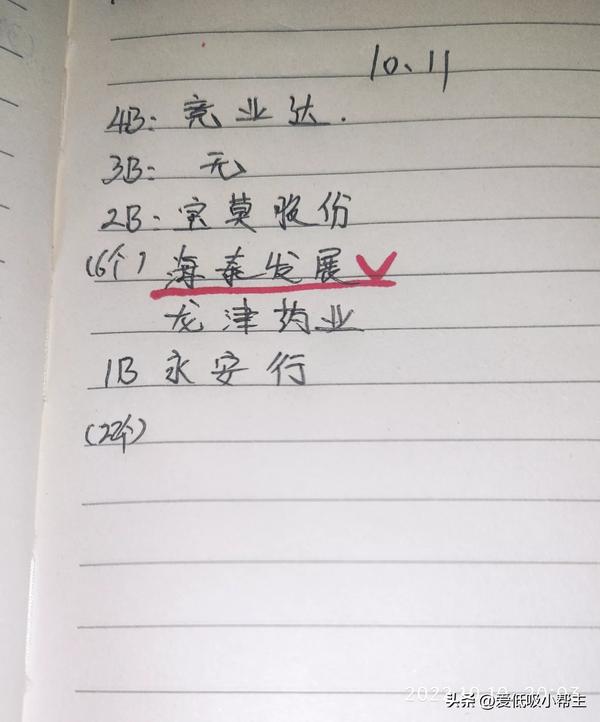 10、11
4B：竞业达.
3B：无
2B：宝莫股份
(6个)海泰发展
龙津药业
1B 永安行
(22个)
2022.10.10 20:03
头条 @爱低吸小帮主